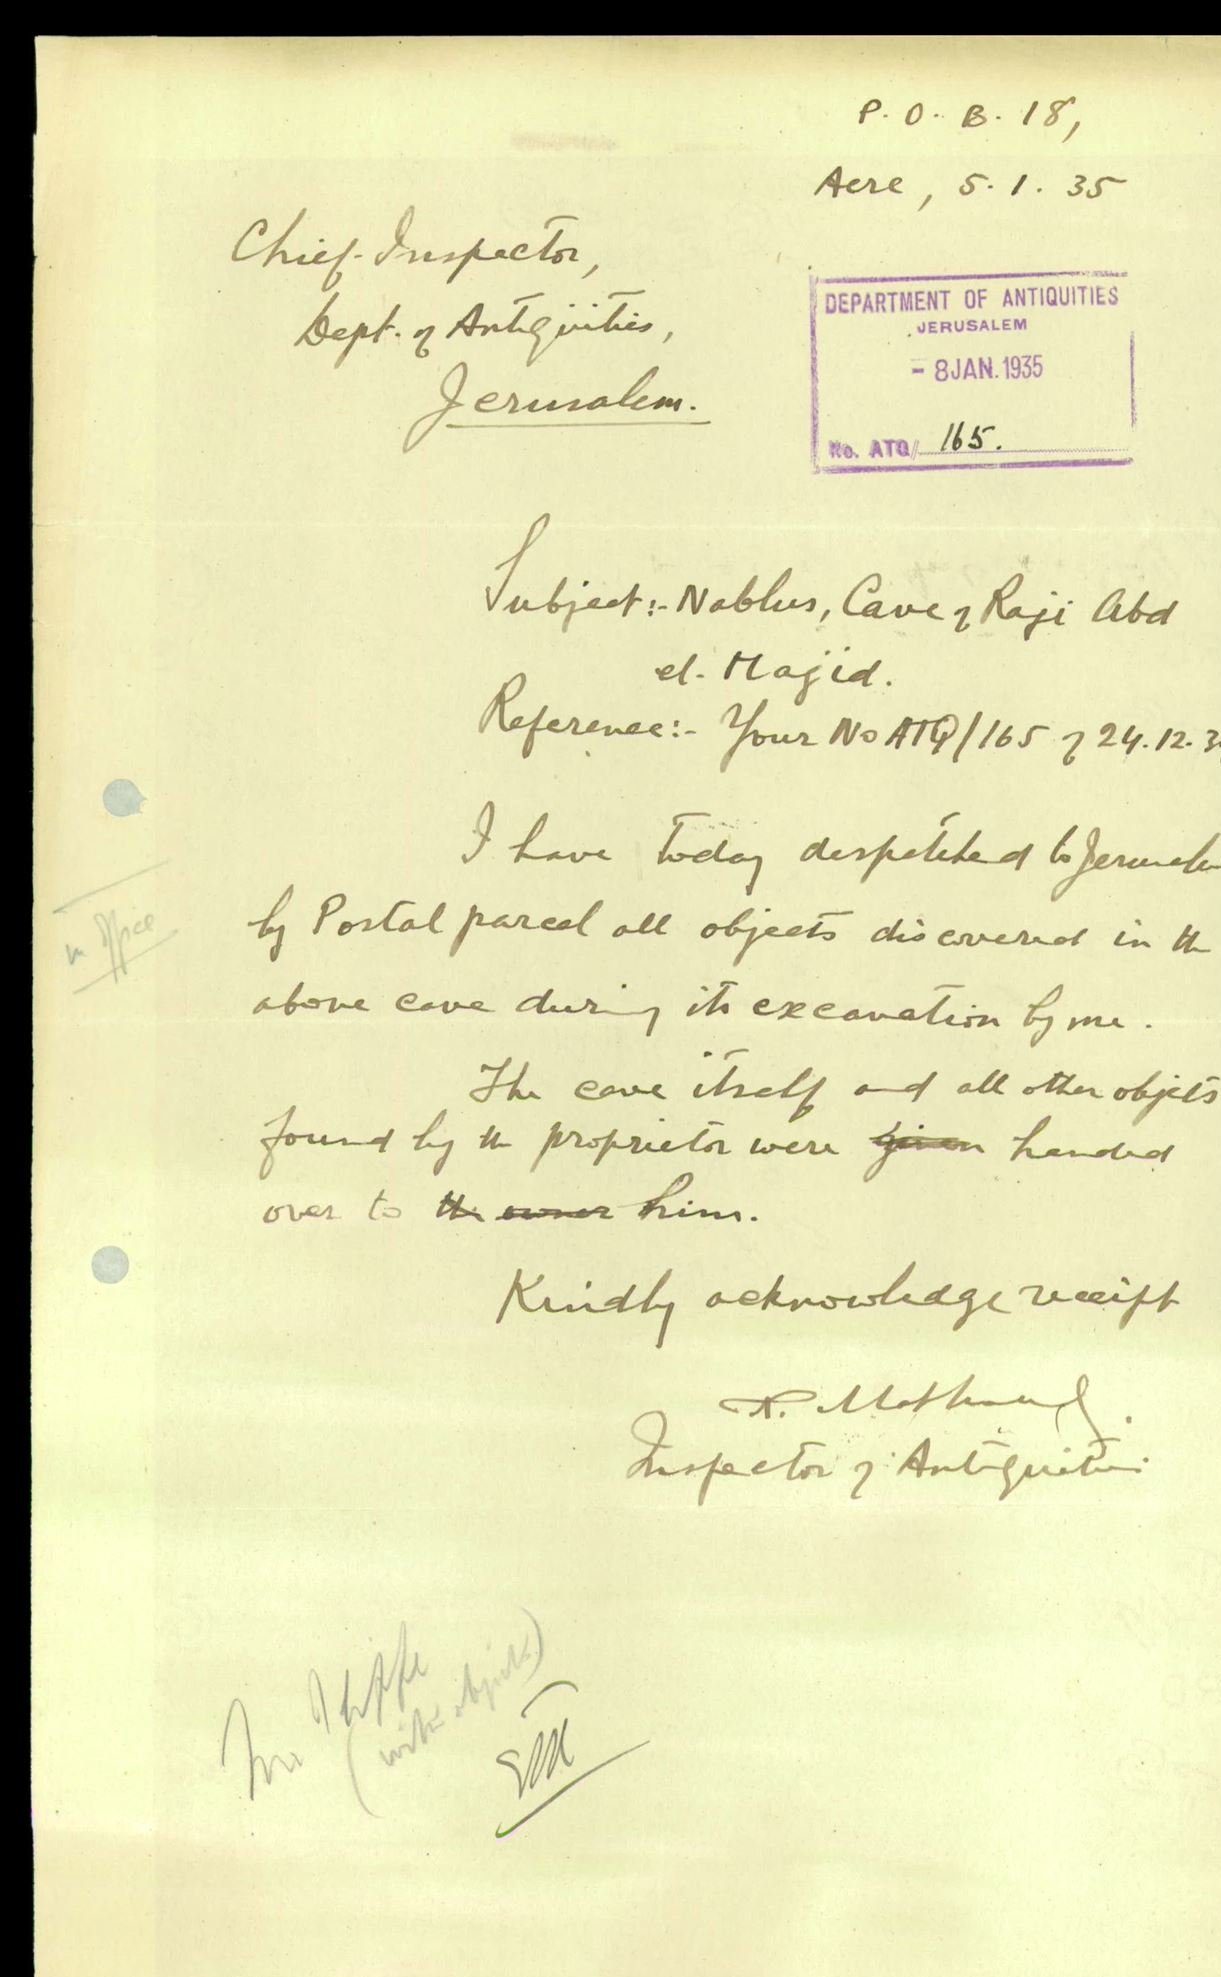 P. O. B. 18,
Acre, 5. 1. 35
Chief-Inspector,
Dept. of Antiquities,
Jerusalem.
DEPARTMENT OF ANTIQUITIES
JERUSALEM
- 8 JAN. 1935
No. ATQ/ 165.
Subject:- Nablus, Cave of Raji Abd
el-Majid.
Reference:- Your No ATQ/165 of 24.12.3
I have today despatched to Jerusalem
by Postal parcel all objects discovered in the
in office
above cave during its excavation by me.
The cave itself and all other objects
found by the proprietor were given handed
over to the owner him.
Kindly acknowledge receipt
Inspector of Antiquities
Mr Iliffe
(with objects)